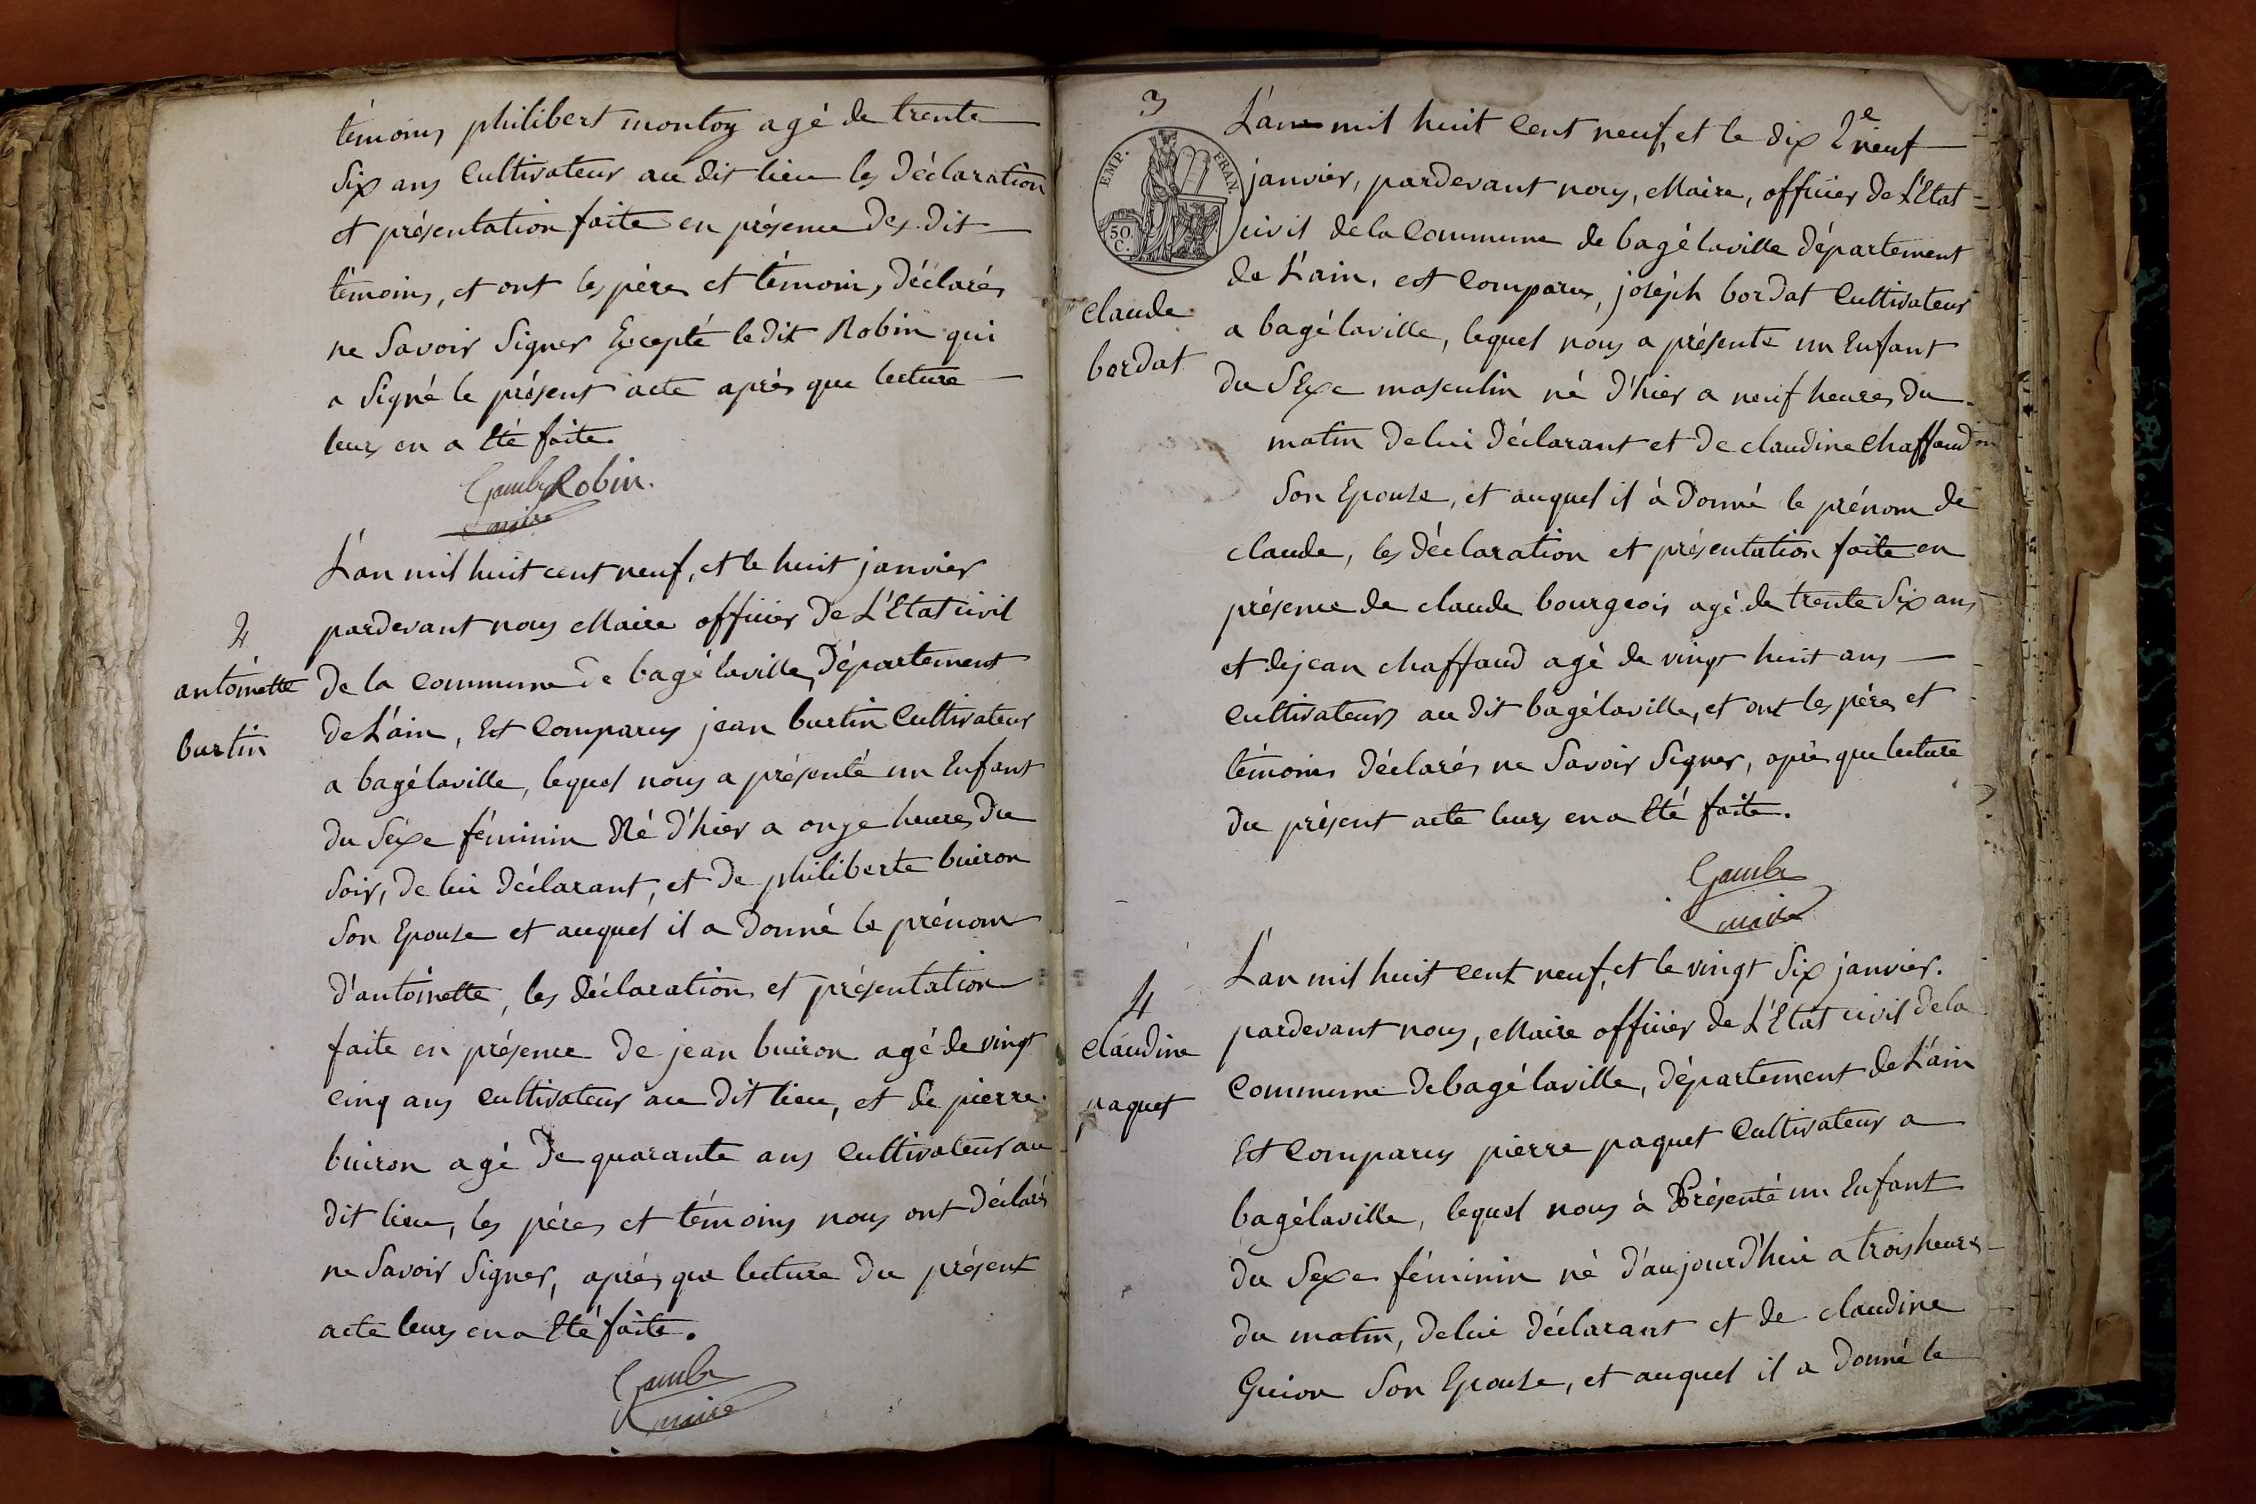 témoins philibert montoy agé de trente
Six ans Cultivateur au dit lieu les Déclaration
et présentation faite en présence des dit
témoins, et ont les père et témoins, Déclarés
ne Savoir Signer Excepté le dit Robin qui
a Signé le présent acte après que lecture
leurs en a Eté faite.
Gambe Robin.
maire
L'an mil huit cent neuf, et le huit janvier
pardevant nous Maire officier De L'Etat civil
De la Commune De bagé laville, Département
De L'ain, Est Comparus jean burtin Cultivateur
a bagé laville, lequel nous a présenté un Enfant
du Sexe féminin Né D'hier a onze heures Du
Soir, De lui Déclarant, et De philiberte buiron
Son Epouse et auquel il a Donné le prénom
D'antoinette, les déclaration et présentation
faite en présence De jean buiron agé de vingt
Cinq ans Cultivateur au Dit lieu, et de pierre
buiron agé De quarante ans Cultivateur au
Dit lieu, les pères et témoins nous ont Déclaré
ne Savoir Signer, après que lecture Du présent
acte leurs en a Eté faite.
Gambe
maire
2
antoinette
burtin
3
EMP. FRAN.
50.
C.
claude
bordat
L'an mil huit Cent neuf, et le dix neuf
janvier, pardevant nous, Maire, officier de L'Etat
civil de la Commune de bagé laville Département
de L'ain, est Comparus, joséph bordat Cultivateur
a bagé laville, lequel nous a présenté un Enfant
Du SExe masculin né D'hier a neuf heures Du
matin De lui Déclarant et De claudine Chaffaud
Son Epouse, et auquel il à Donné le prénom de
claude, les Déclaration et présentation faite en
présence de claude bourgeois agé de trente Six ans
et de jean chaffaud agé de vingt huit ans
Cultivateurs au dit bagé laville, et ont les père et
témoins Déclarés ne Savoir Signer, après que lecture
Du présent acte leurs en a Eté faite.
Gambe
maire
4
Claudine
paquet
L'an mil huit cent neuf, et le vingt Six janvier.
pardevant nous, Maire officier de L'Etat civil De la
Commune De bagé laville, Département de L'ain
Est Comparus pierre paquet Cultivateur a
bagé laville, lequel nous à Présenté un Enfant
Du Sexe féminin né D'aujourd'hui a trois heures
Du matin, De lui Déclarant et de claudine
Guion Son Epouse, et auquel il a Donné le